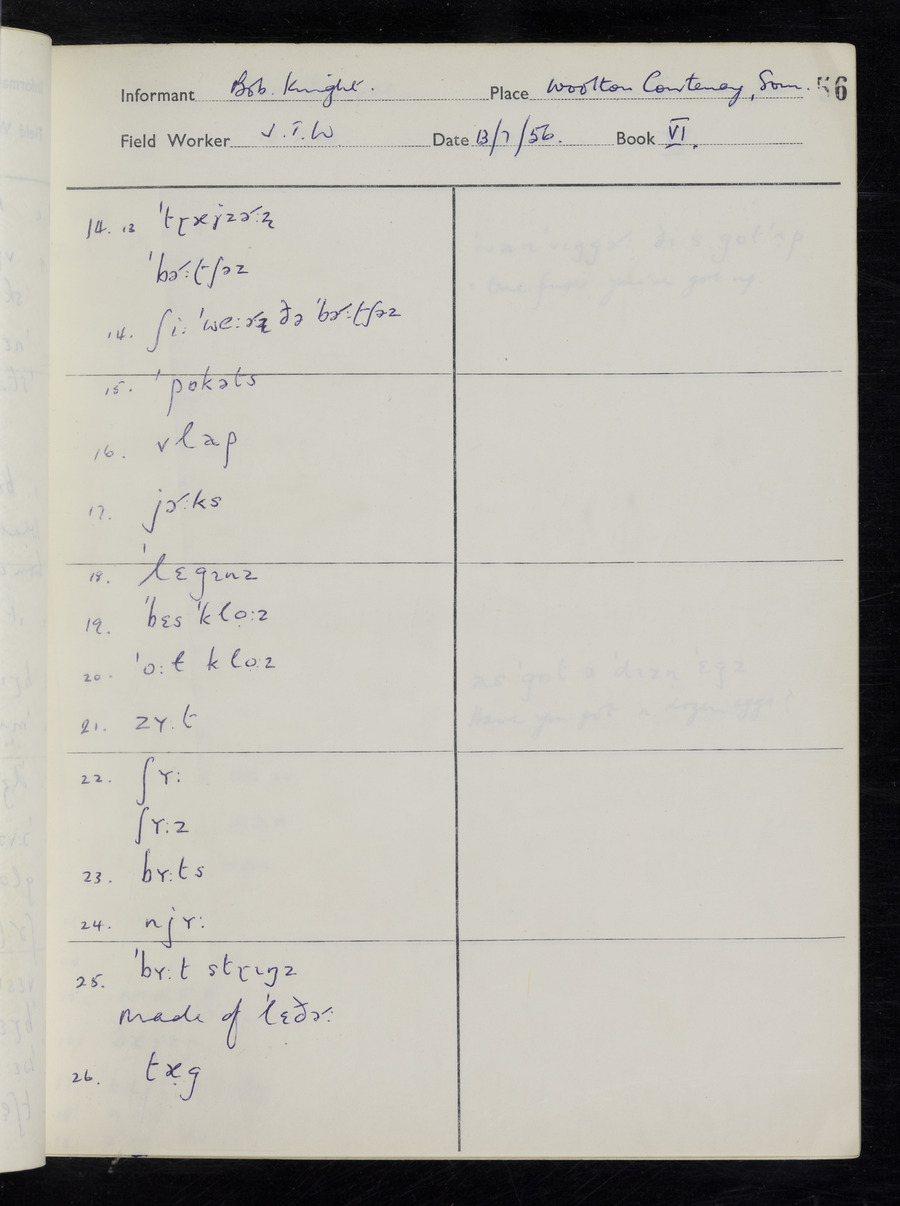 Informant Bob. Knight. Place Wootton Courtenay, Som. 56
Field Worker V.T.W Date 13/7/56. Book VI.
14. 13 ˈtɽæjzɚːz̩
ˈbɚːtʃəz
14. ʃiː ˈweːɚz ðə ˈbɚːtʃəz
15. ˈpɒkəts
16. vlap
17. jɚːks
18. ˈlɛgɪnz
19. ˈbɛs ˈklo̞ːz
20. ˈo̞ːt klo̞ːz
21. zʏːt
22. ʃʏː
ʃʏːz
23. bʏːts
24. njʏː
25. ˈbʏːt stɽɪŋz
made of ˈlɛðɚː
26. tæ̣g